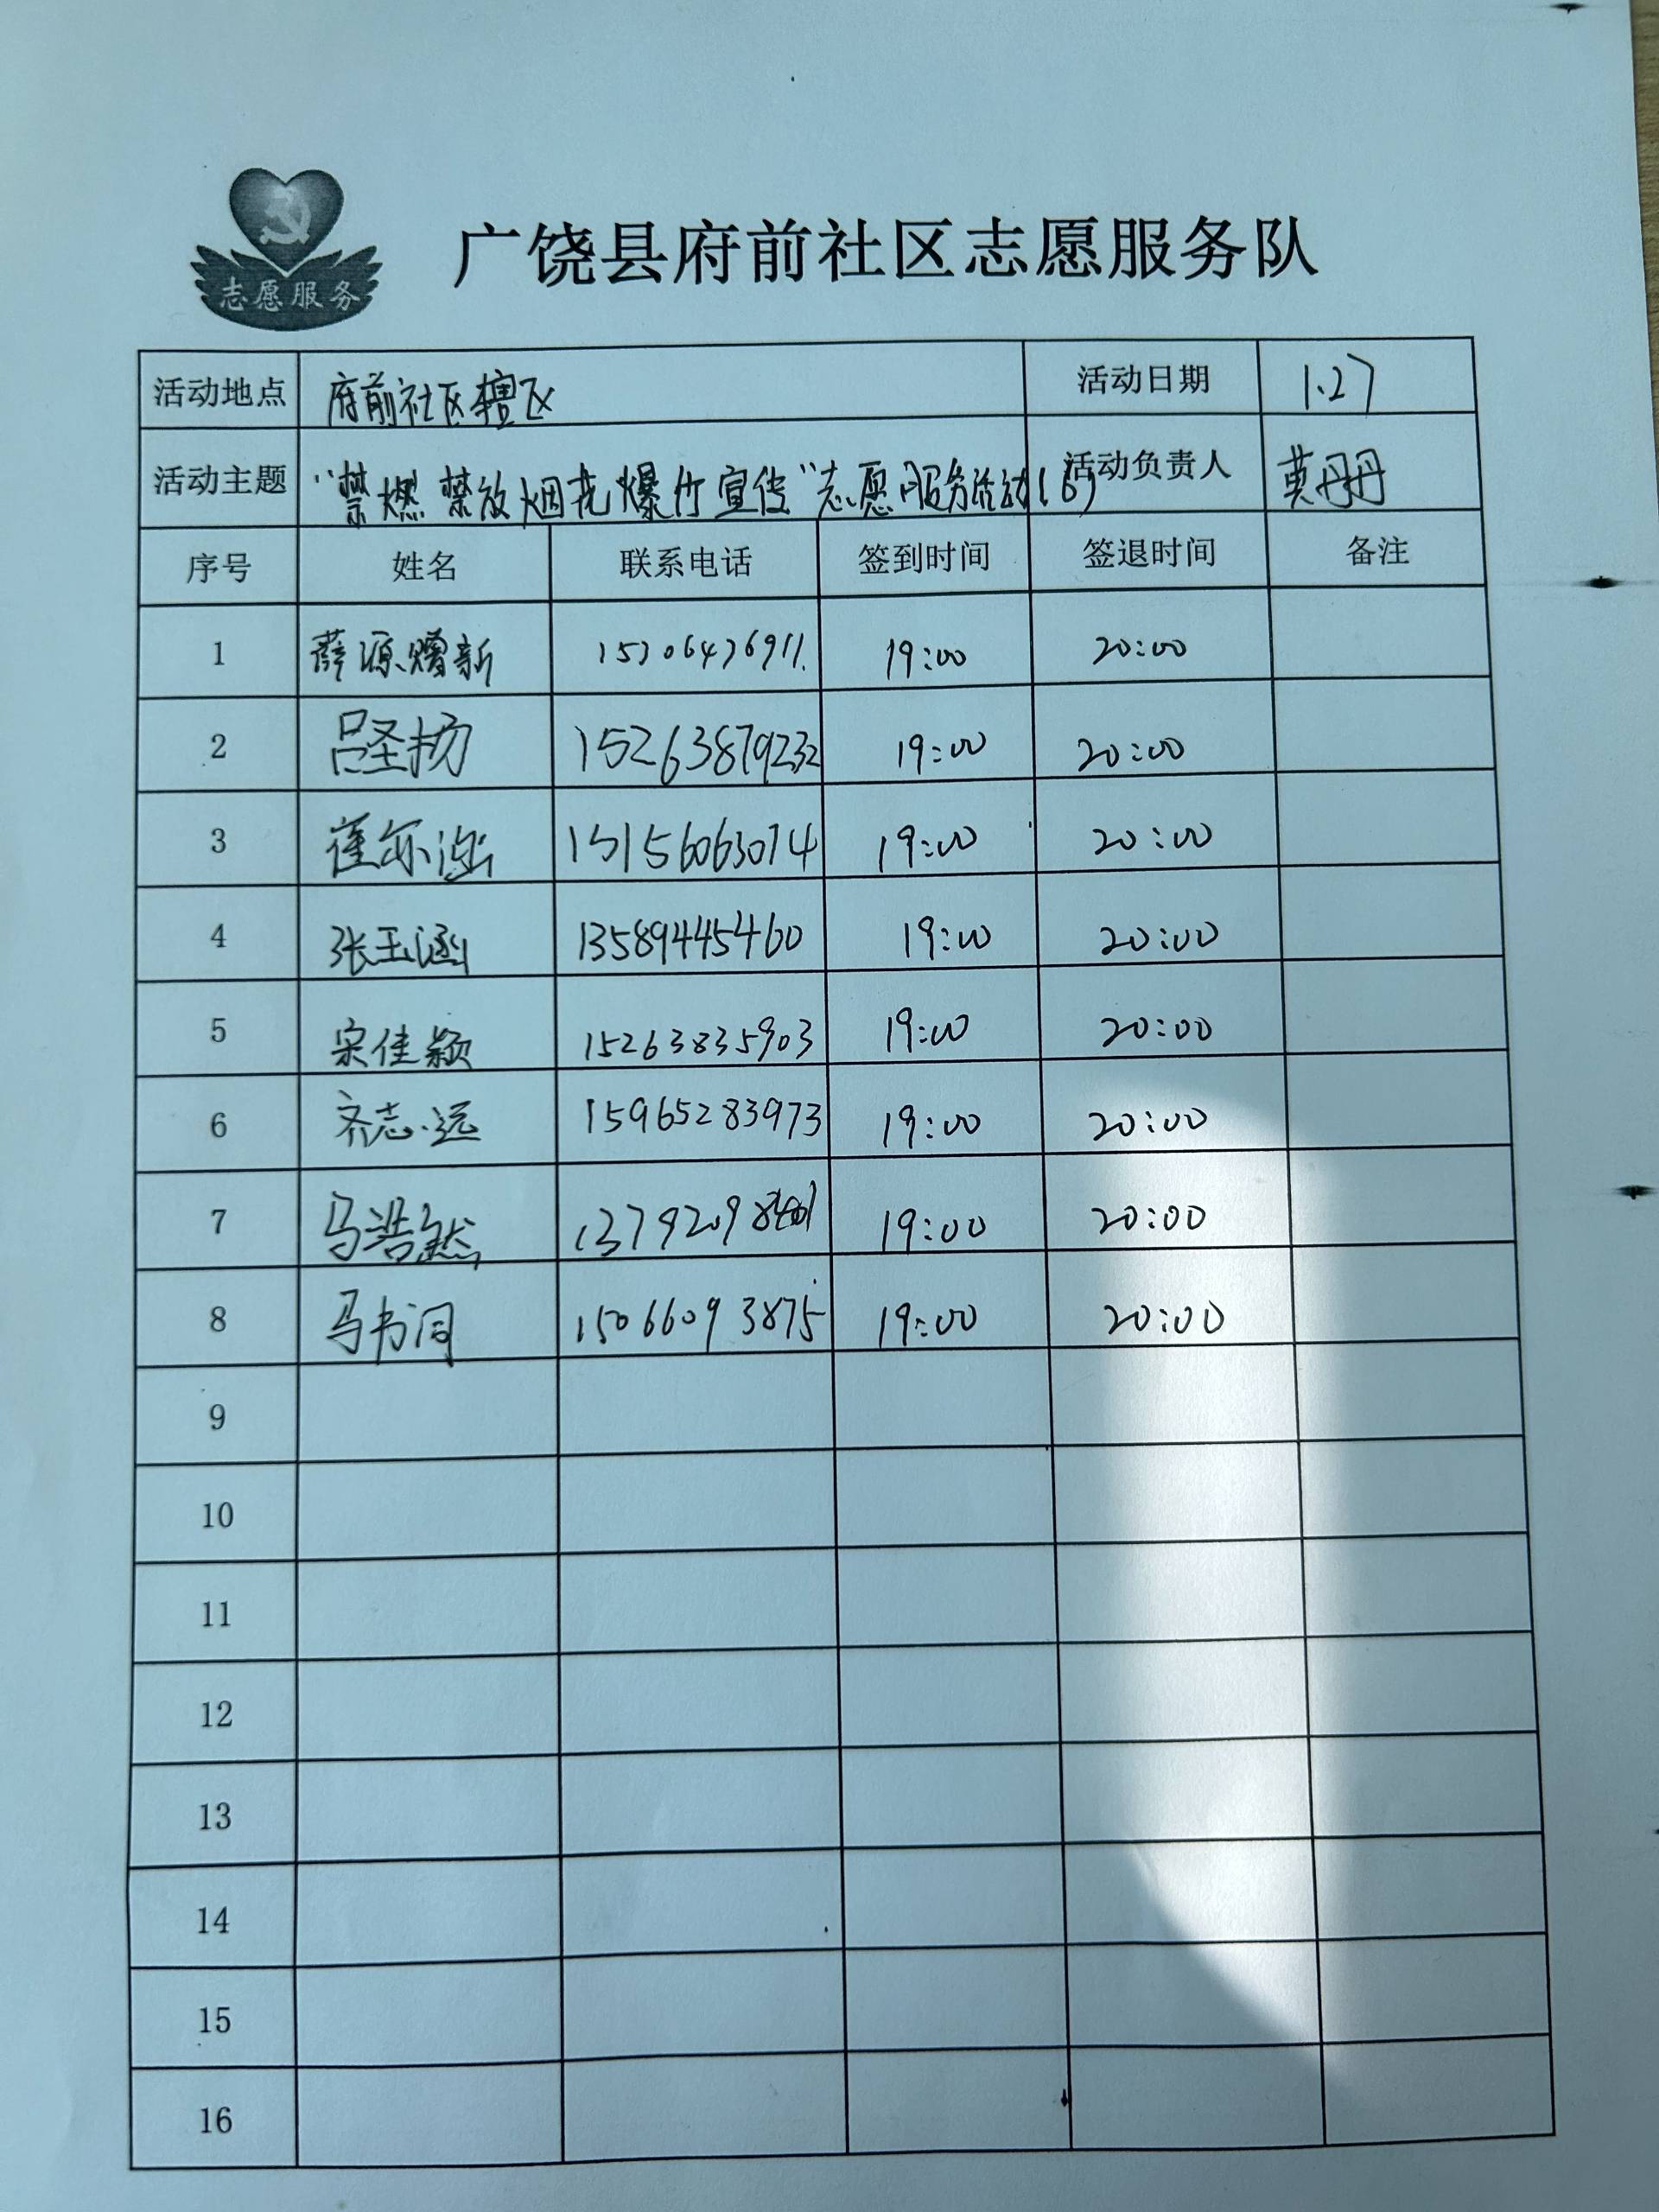 志愿服务
广饶县府前社区志愿服务队
活动地点 府前社区辖区 活动日期 1.27
活动主题 “禁燃禁放烟花爆竹宣传”志愿服务活动(6) 活动负责人 莫丹丹
序号 姓名 联系电话 签到时间 签退时间 备注
1 薛源熠新 19:00 20:00
2 吕圣扬 15263879232 19:00 20:00
3 15156063074 19:00 20:00
4 张玉涵 13589445460 19:00 20:00
5 宋佳颖 15263835903 19:00 20:00
6 齐志远 15965283973 19:00 20:00
7 马浩然 19:00 20:00
8 马书涧 15066093875 19:00 20:00
9
10
11
12
13
14
15
16